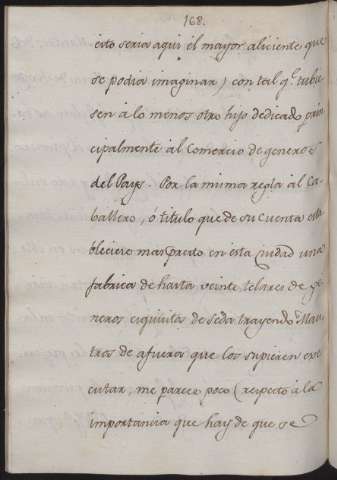 168.
esto seria aqui el mayor aliciente que
se podia imaginar) con tal q.e tubie
sen á lo menos otro hijo dedicado prin
cipalmente al Comercio de generos
del Pays. Por la misma regla al Ca
ballero, ó titulo que de su cuenta esta
bleciere mas presto en esta Ciudad una
fabrica de hasta veinte telares de ge
neros exquisitos de seda trayendo Maes
tros de afuera que los supiesen exe
cutar, me parece poco (respecto á la
importancia que hay de que se